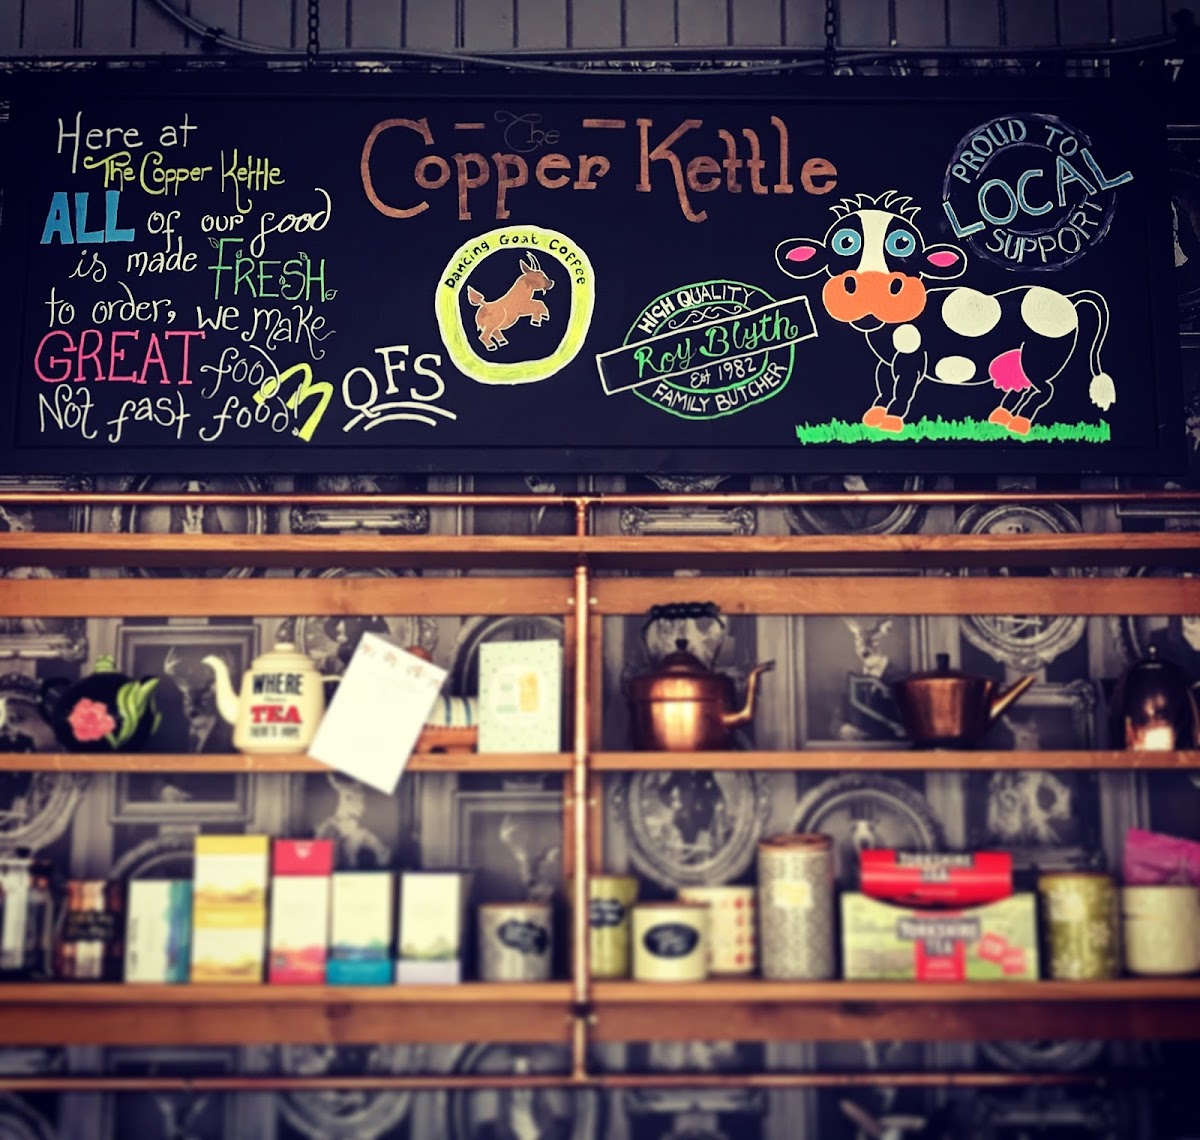 Here at
The Copper Kettle
ALL of our food
is made FRESH
to order, we make
GREAT food
Not fast food!
The
Copper Kettle
Dancing Goat Coffee
QFS
HIGH QUALITY
Roy Blyth
Est 1982
FAMILY BUTCHER
PROUD TO
LOCAL
SUPPORT
WHERE
TEA
YORKSHIRE
TEA
YORKSHIRE
TEA